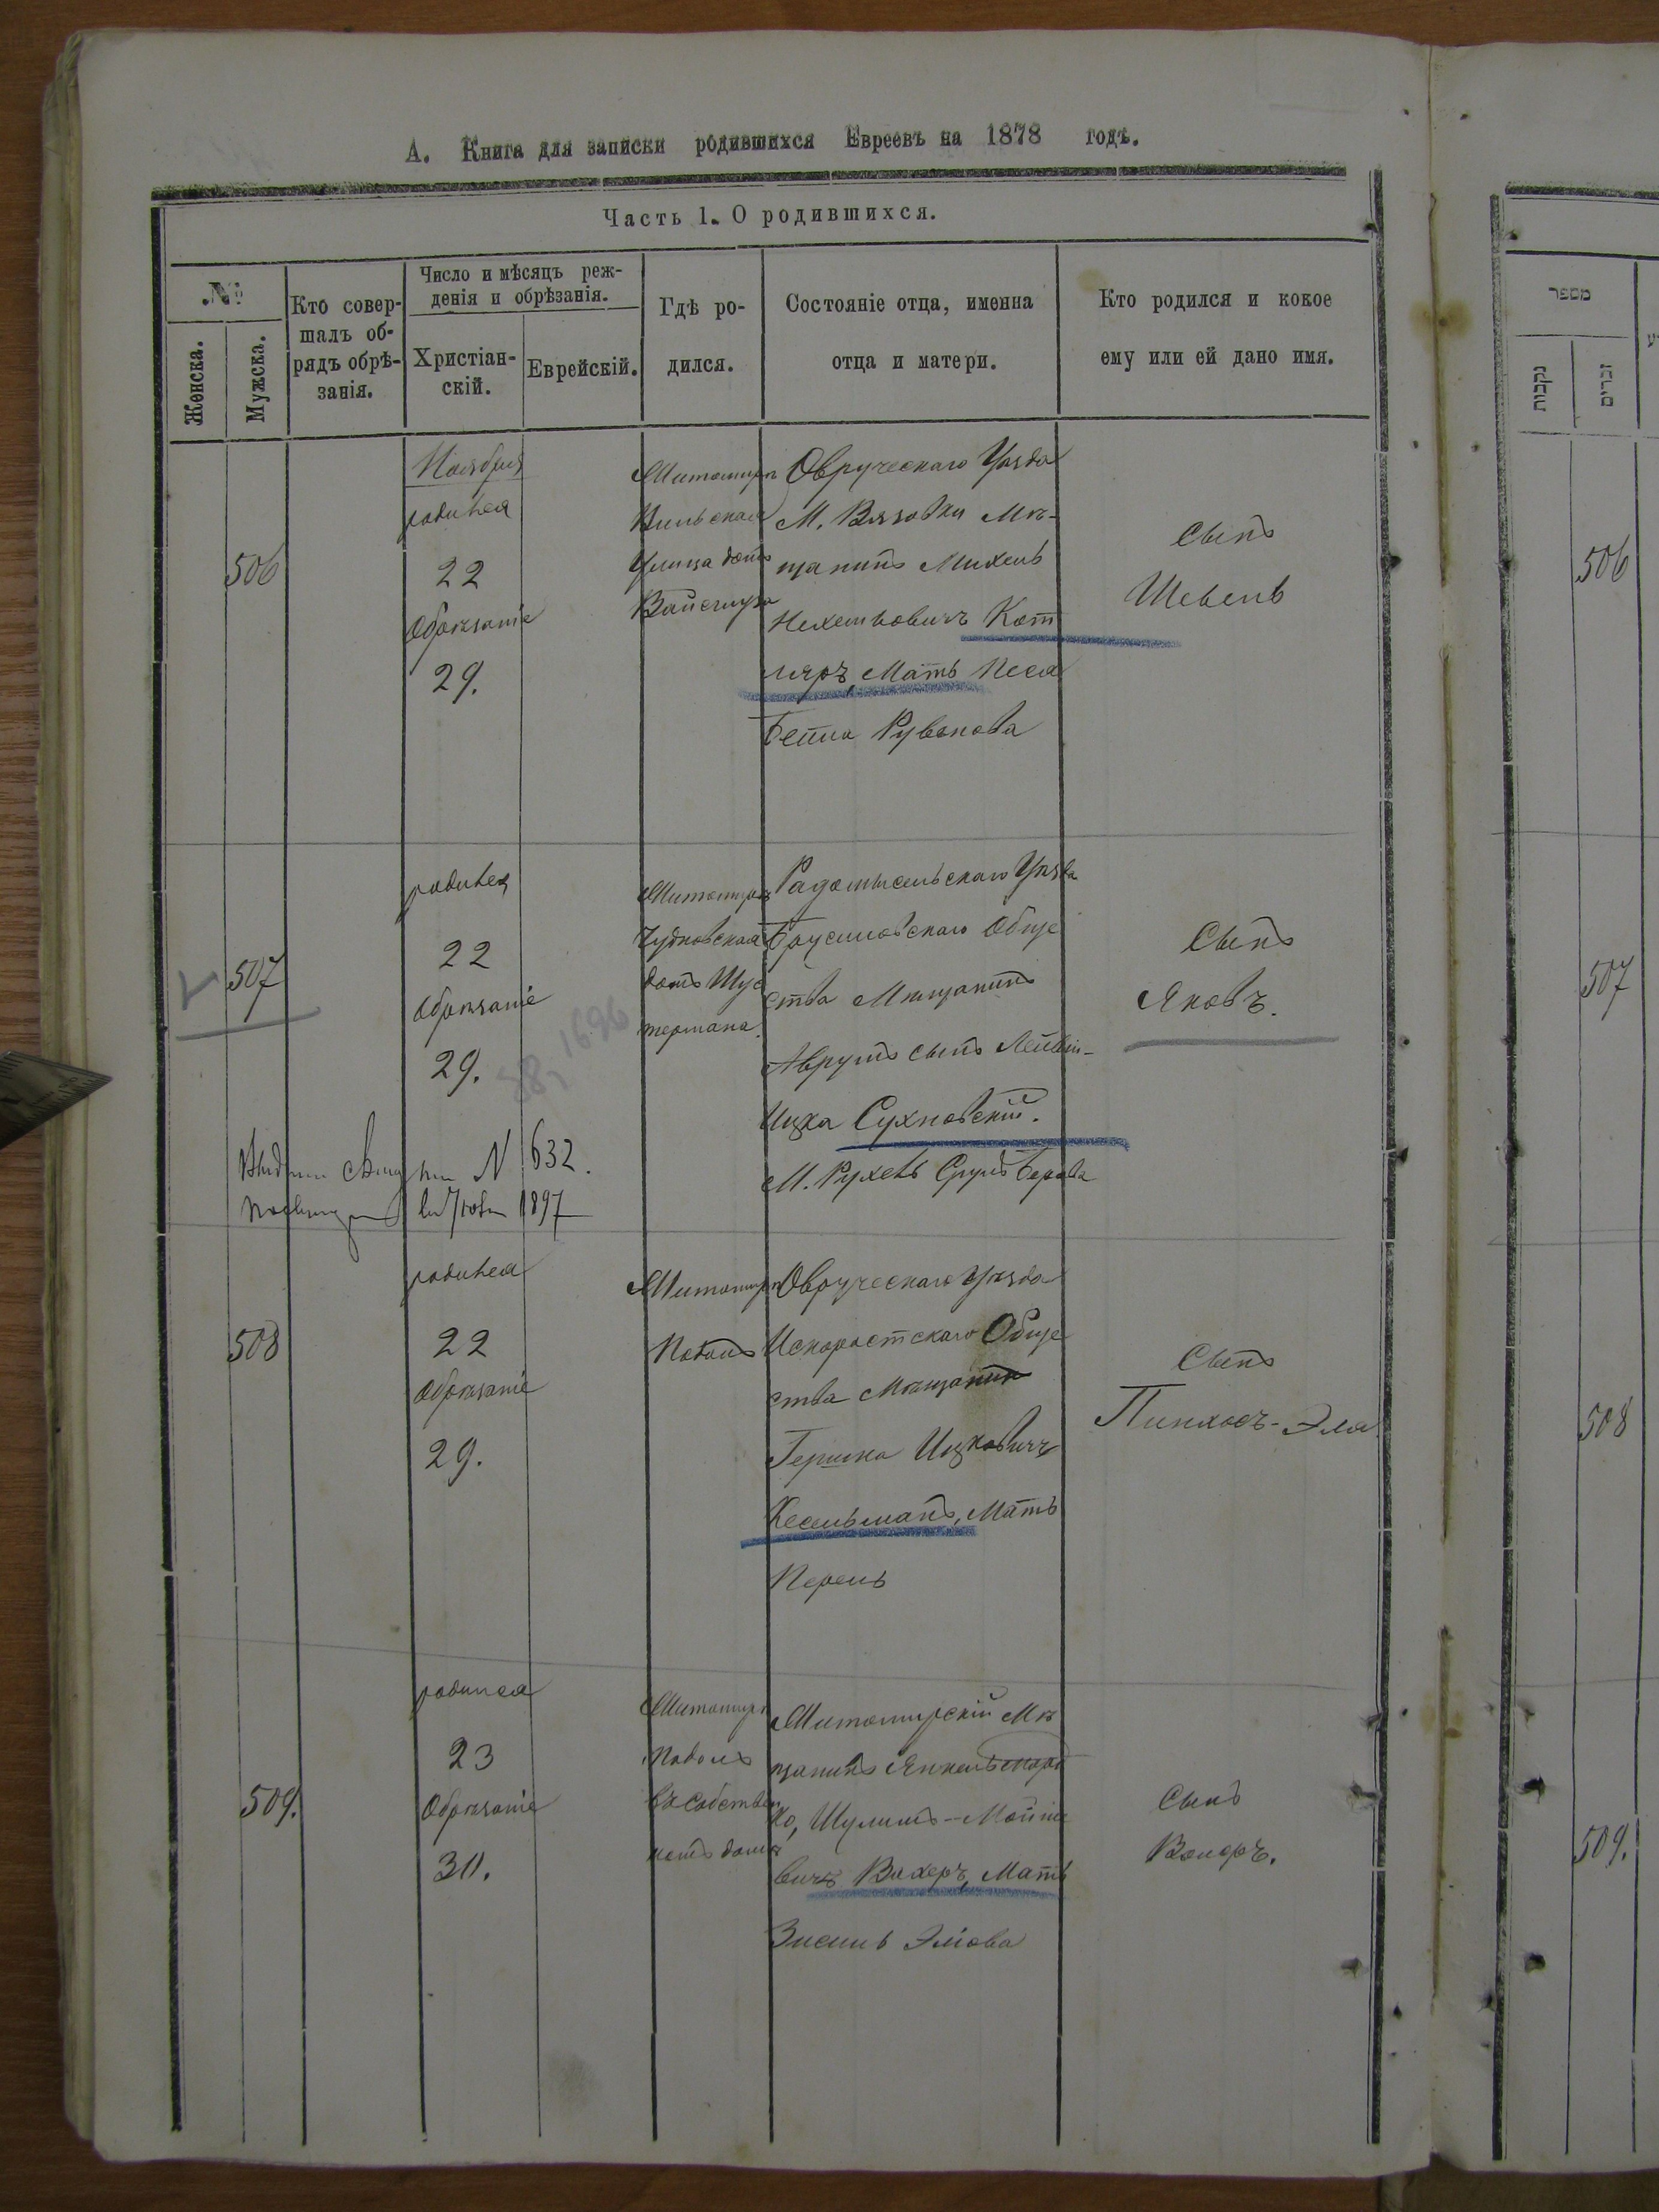 А. Книга для записки родившихся Евреевъ на 1878 годъ.
Часть 1. О родившихся.
№
Женска.
Мужска.
Кто совер-
шалъ об-
рядъ обрѣ-
занія.
Число и мѣсяцъ реж-
денія и обрѣзанія.
Христіан-
скій.
Еврейскій.
Гдѣ ро-
дился.
Состояніе отца, именна
отца и матери.
Кто родился и кокое
ему или ей дано имя.
506
Ноября
родился
22
Обрѣзаніе
29.
Житомиръ
Вильская
Улица домъ
Овруческаго Уѣзда
М. Вязовки Мѣ-
щанинъ Михель
Нехемьовичъ Кот
ляръ, Мать Песя
Бейла Рувенова
Сынъ
507
родился
22
Обрѣзаніе
29.
Житомиръ
Чудновская
домъ Шус
термана.
Радомысельскаго Уѣзда
Брусиловскаго Обще
ства Мѣщанинъ
Аврумъ сынъ
Ицка Сухновскій.
М. Рухель
Сынъ
Яковъ.
N 632.
1897
508
родился
22
Обрѣзаніе
29.
Житомиръ
Подолъ
Овруческаго Уѣзда
Искоростскаго Обще
ства Мѣщанинъ
Гершко Ицковичъ
Кесельманъ, Мать
Перель
Сынъ
Пинхосъ-Эля
509.
родился
23
Обрѣзаніе
30.
Житомиръ
Подолъ
въ собствен
номъ домѣ
Житомирскій Мѣ
щанинъ
ко, Шулимъ-Мошко
вичъ Вахеръ, Мать
Сынъ
מספר
נקבות
זכרים
506
507
508
509.